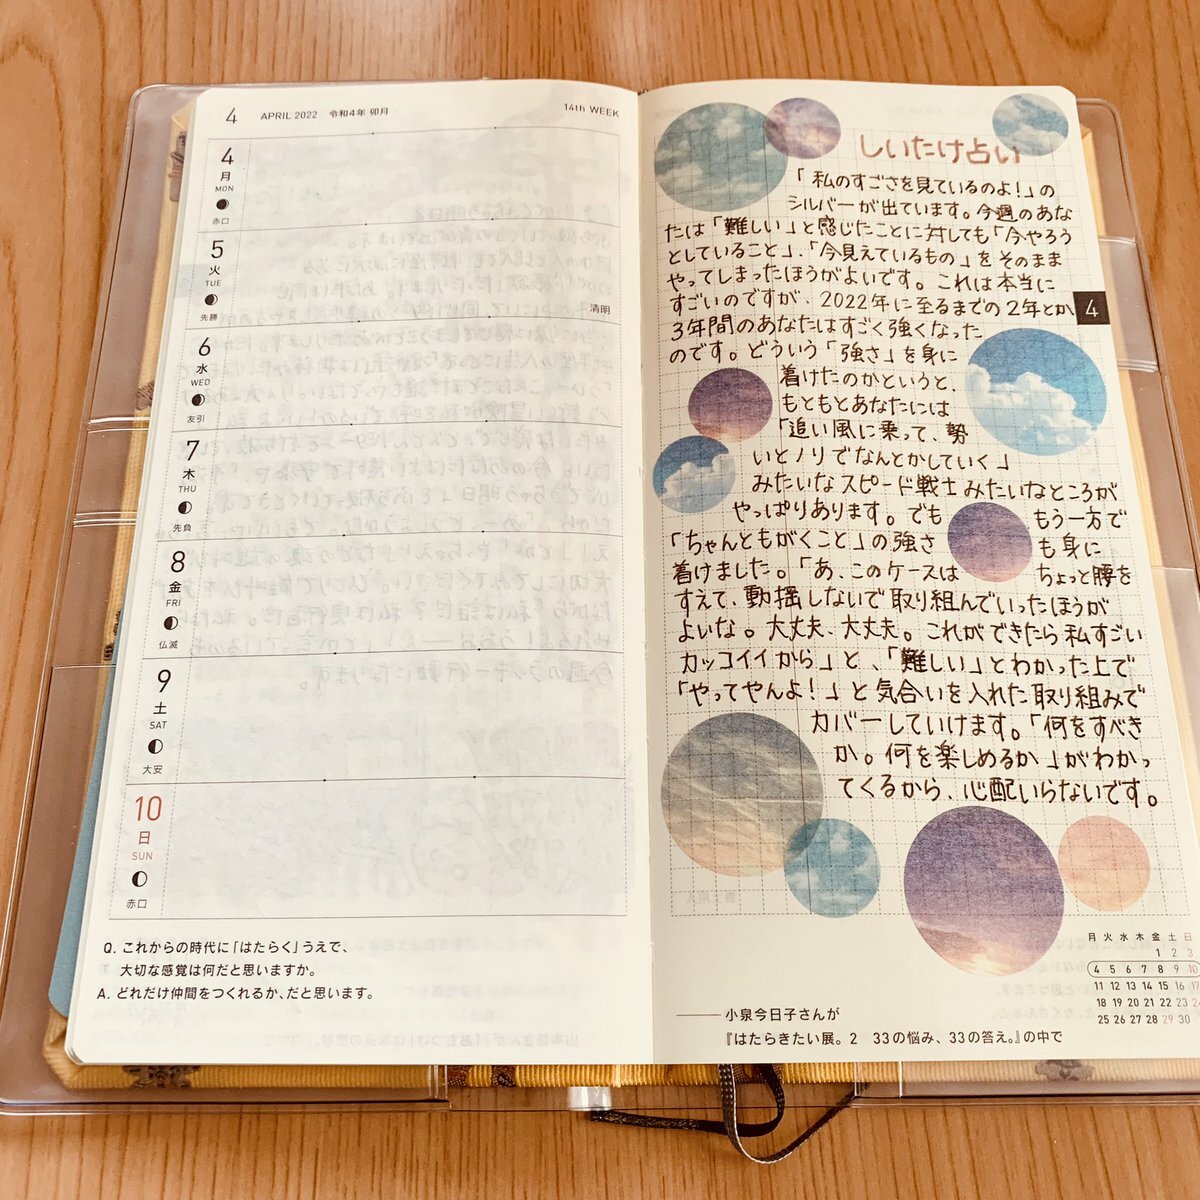 4 APRIL 2022 令和4年 卯月 14th WEEK
4
月
MON
赤口
5
火
TUE
先勝
清明
6
水
WED
友引
7
木
THU
先負
8
金
FRI
仏滅
9
土
SAT
大安
10
日
SUN
赤口
Q. これからの時代に「はたらく」うえで、
大切な感覚は何だと思いますか。
A. どれだけ仲間をつくれるか、だと思います。
しいたけ占い
「私のすごさを見ているのよ!」の
シルバーが出ています。今週のあな
たは「難しい」と感じたことに対しても「今やろう
としていること」、「今見えているもの」をそのまま
やってしまったほうがよいです。これは本当に
すごいのですが、2022年に至るまでの2年とか
3年間のあなたはすごく強くなった
のです。どういう「強さ」を身に
着けたのかというと、
もともとあなたには
「追い風に乗って、勢
いとノリでなんとかしていく」
みたいなスピード戦士みたいなところが
やっぱりあります。でも もう一方で
「ちゃんともがくこと」の強さ も身に
着けました。「あ、このケースは ちょっと腰を
すえて、動揺しないで取り組んでいったほうが
よいな。大丈夫、大丈夫。これができたら私すごい
カッコイイから」と、「難しい」とわかった上で
「やってやんよ!」と気合いを入れた取り組みで
カバーしていけます。「何をすべき
か。何を楽しめるか」がわかっ
てくるから、心配いらないです。
4
月 火 水 木 金 土 日
1 2 3
4 5 6 7 8 9 10
11 12 13 14 15 16 17
18 19 20 21 22 23 24
25 26 27 28 29 30
小泉今日子さんが
『はたらきたい展。2 33の悩み、33の答え。』の中で